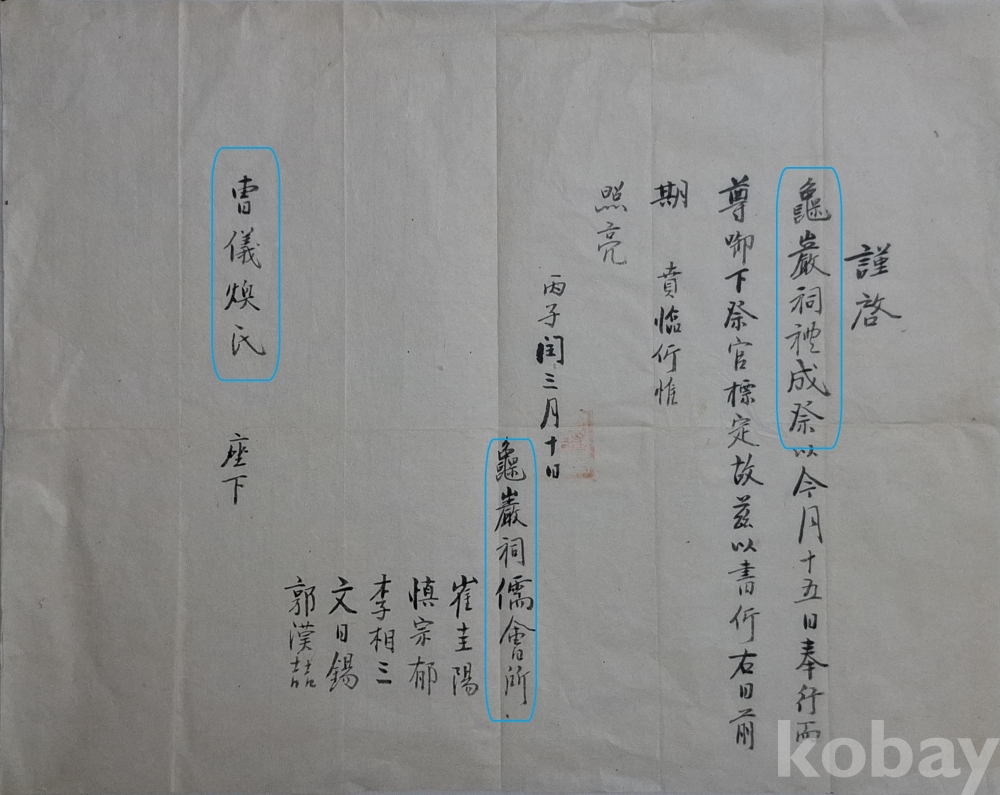 謹啓
龜巖祠禮成祭以今月十五日奉行而
尊啣下祭官標定故玆以書仰右日前
期 賁臨仰惟
照亮
丙子閏三月十日
龜巖祠儒會所
崔圭陽
愼宗郁
李相三
文日錫
郭漢喆
曺儀煥氏 座下
kobay